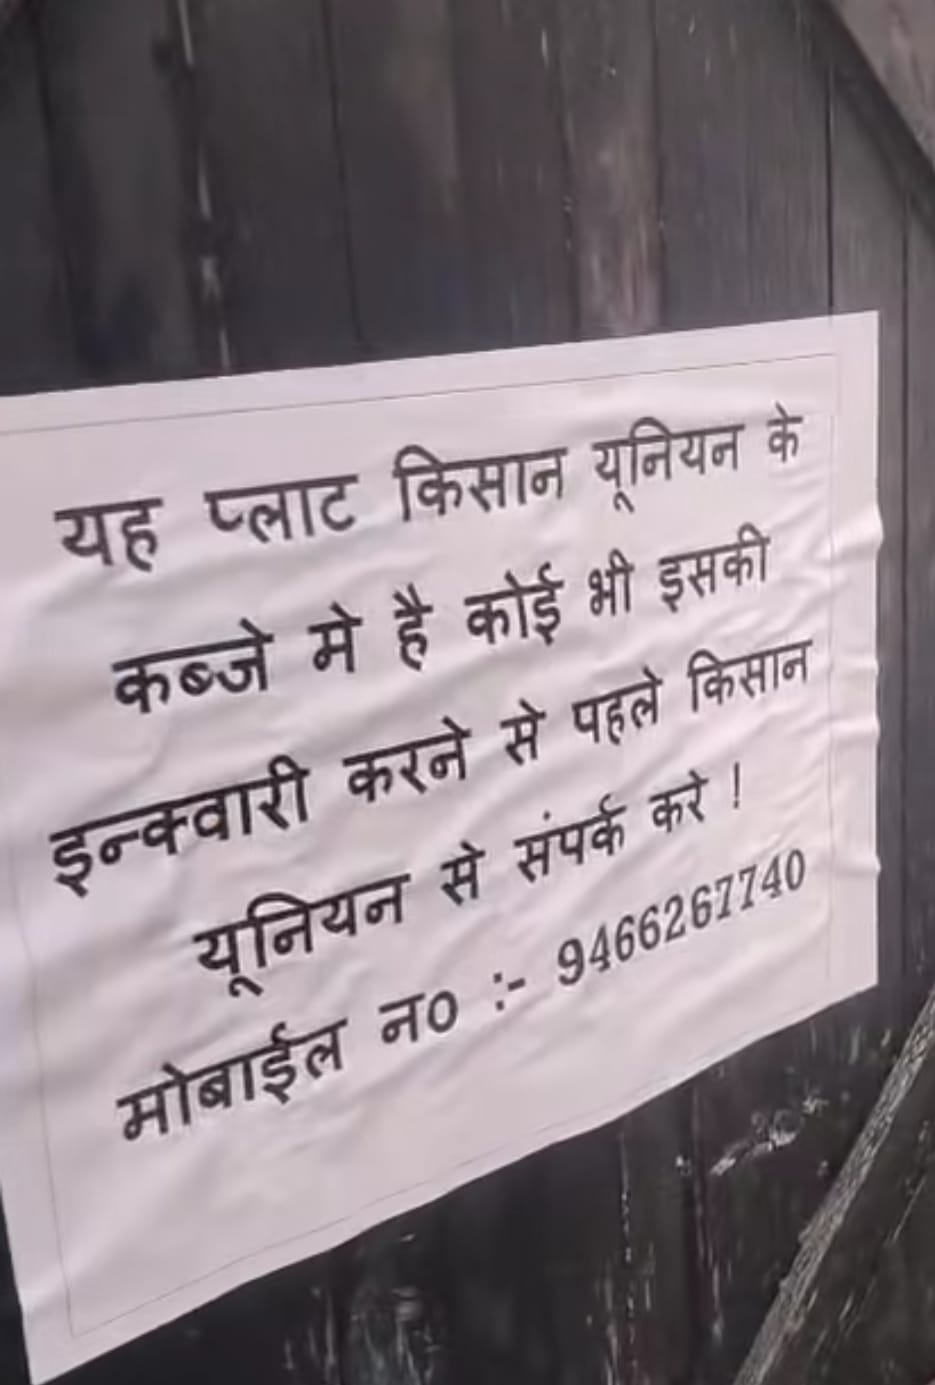 यह प्लाट किसान यूनियन के
कब्जे मे है कोई भी इसकी
इन्क्वारी करने से पहले किसान
यूनियन से संपर्क करे !
मोबाईल न० :- 9466267740